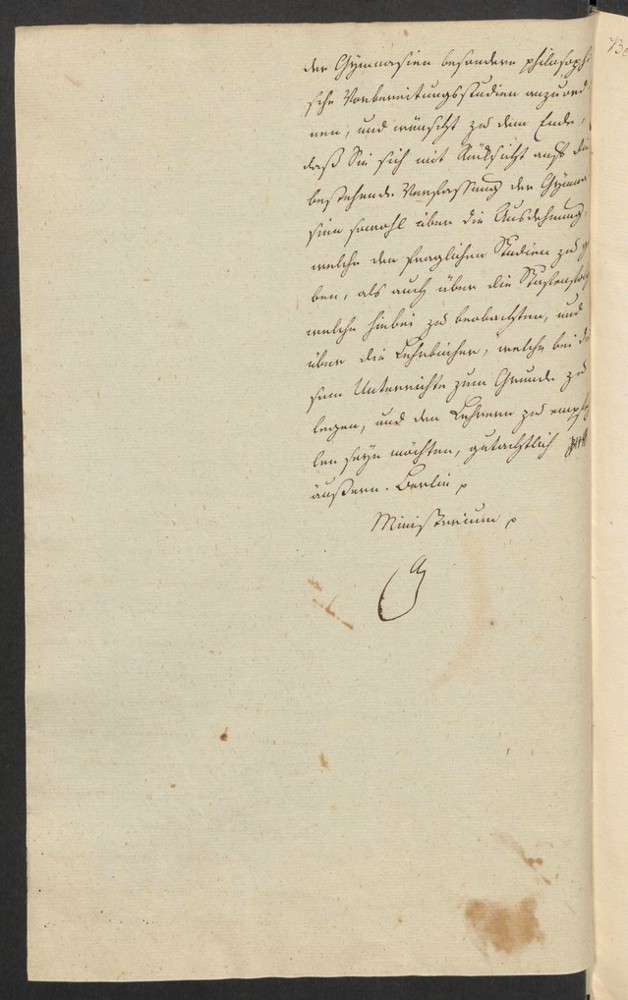 der Gymnasien besondere philosophi
sche Vorbereitungsstudien anzuord
nen, und wünscht zu dem Ende,
daß Sie sich mit Rücksicht auf die
bestehende Verfassung der Gymna
sien sowohl über die Ausdehnung,
welche den fraglichen Studien zu g
ben, als auch über die Stufenfolg
welche hiebei zu beobachten, und
über die Lehrbücher, welche bei di
sem Unterrichte zum Grunde zu
legen, und den Lehrern zu empfeh
len seyn möchten, gutachtlich
äußern. Berlin
Ministerium